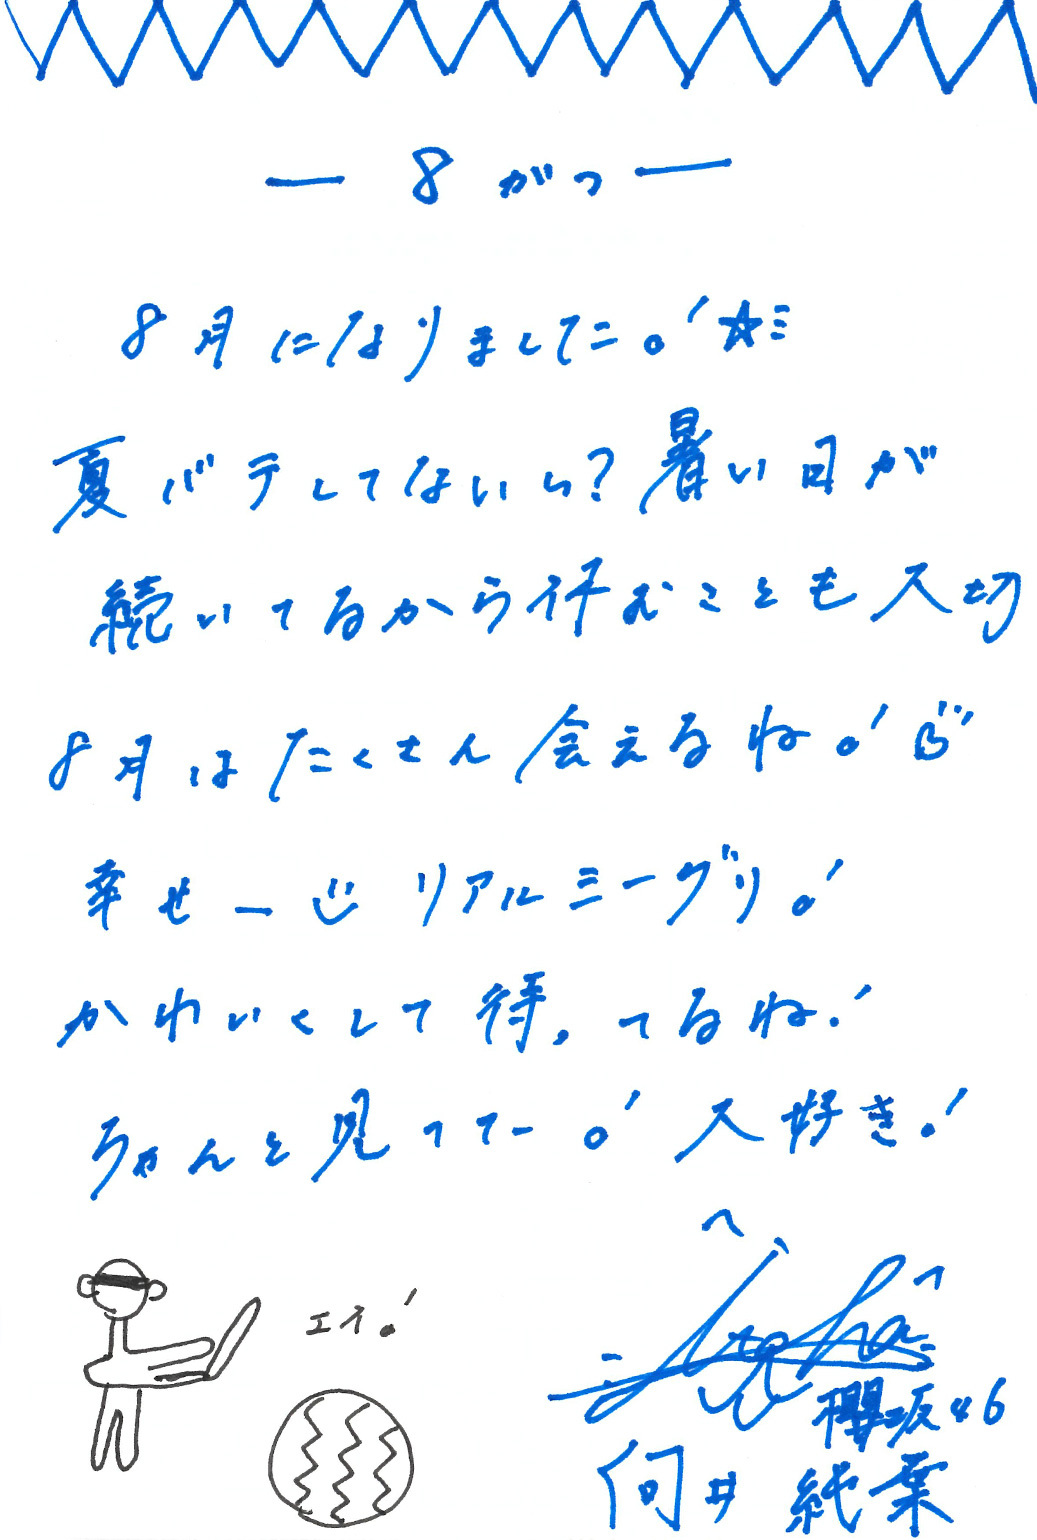 ー 8がつ ー
8月になりました!☆ミ
夏バテしてないい?暑い日が
続いてるから休むことも大切
8月はたくさん会えるね!
幸せー リアルミーグリ!
かわいくして待ってるね!
ちゃんと見ててー!大好き!
エイ!
櫻坂46
向井 純葉